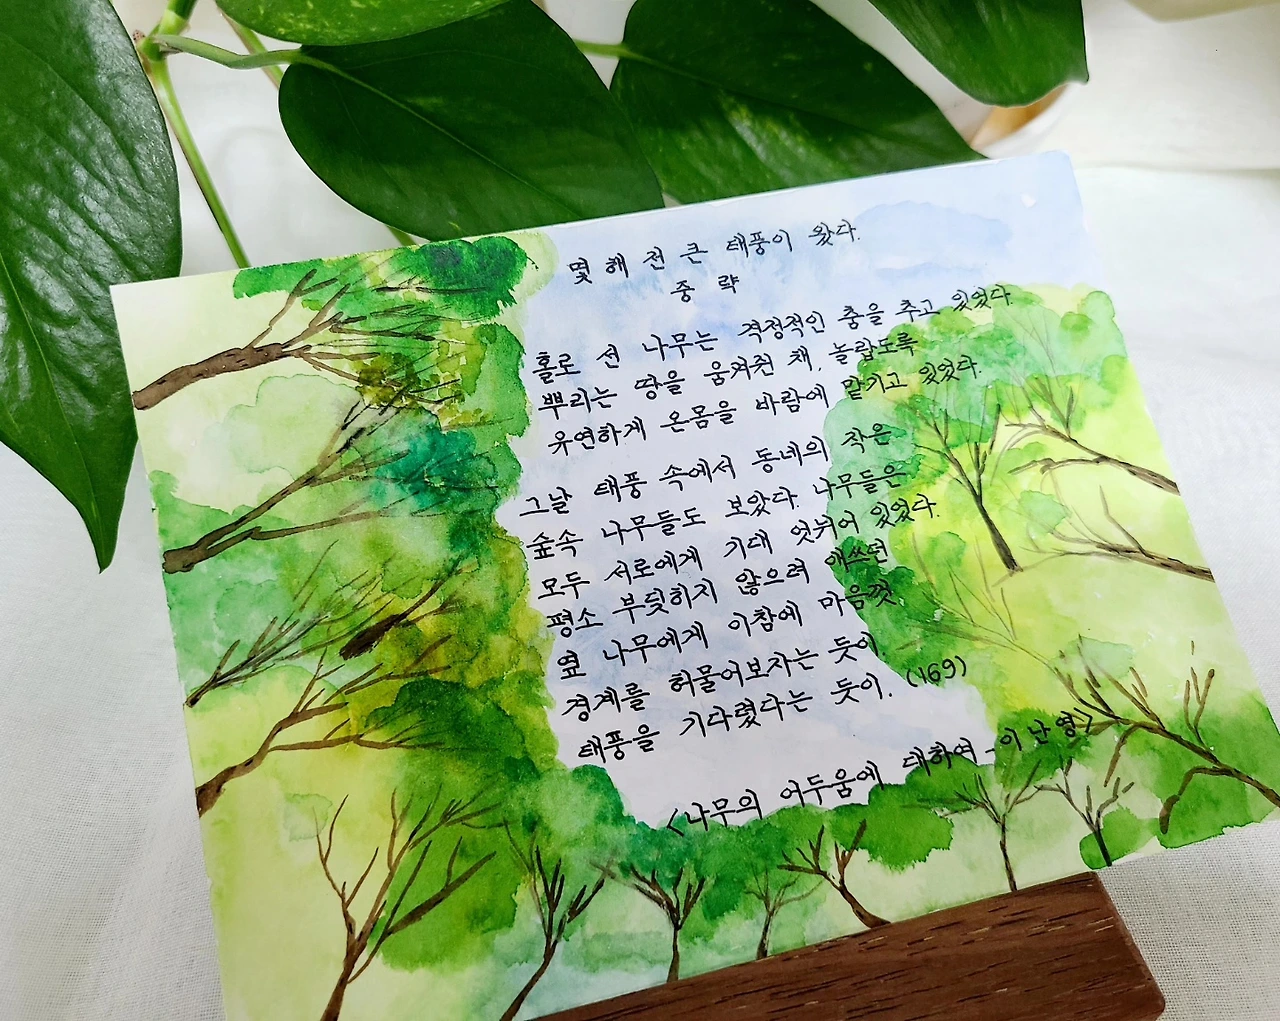 몇 해 전 큰 태풍이 왔다.
중 략
홀로 선 나무는 격정적인 춤을 추고 있었다.
뿌리는 땅을 움켜쥔 채, 놀랍도록
유연하게 온몸을 바람에 맡기고 있었다.
그날 태풍 속에서 동네의 작은
숲속 나무들도 보았다. 나무들은
모두 서로에게 기대 엇뉘어 있었다.
평소 부딪히지 않으려 애쓰던
옆 나무에게 이참에 마음껏
경계를 허물어보자는 듯이
태풍을 기다렸다는 듯이. (169)
<나무의 어두움에 대하여 - 이난영>